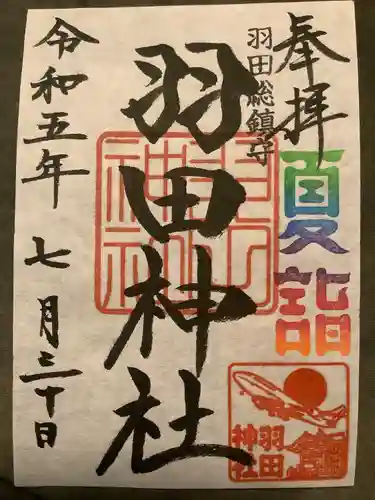 奉拝
夏詣
羽田総鎮守
羽田神社
令和五年 七月三十日
羽田
神社
羽田
神社